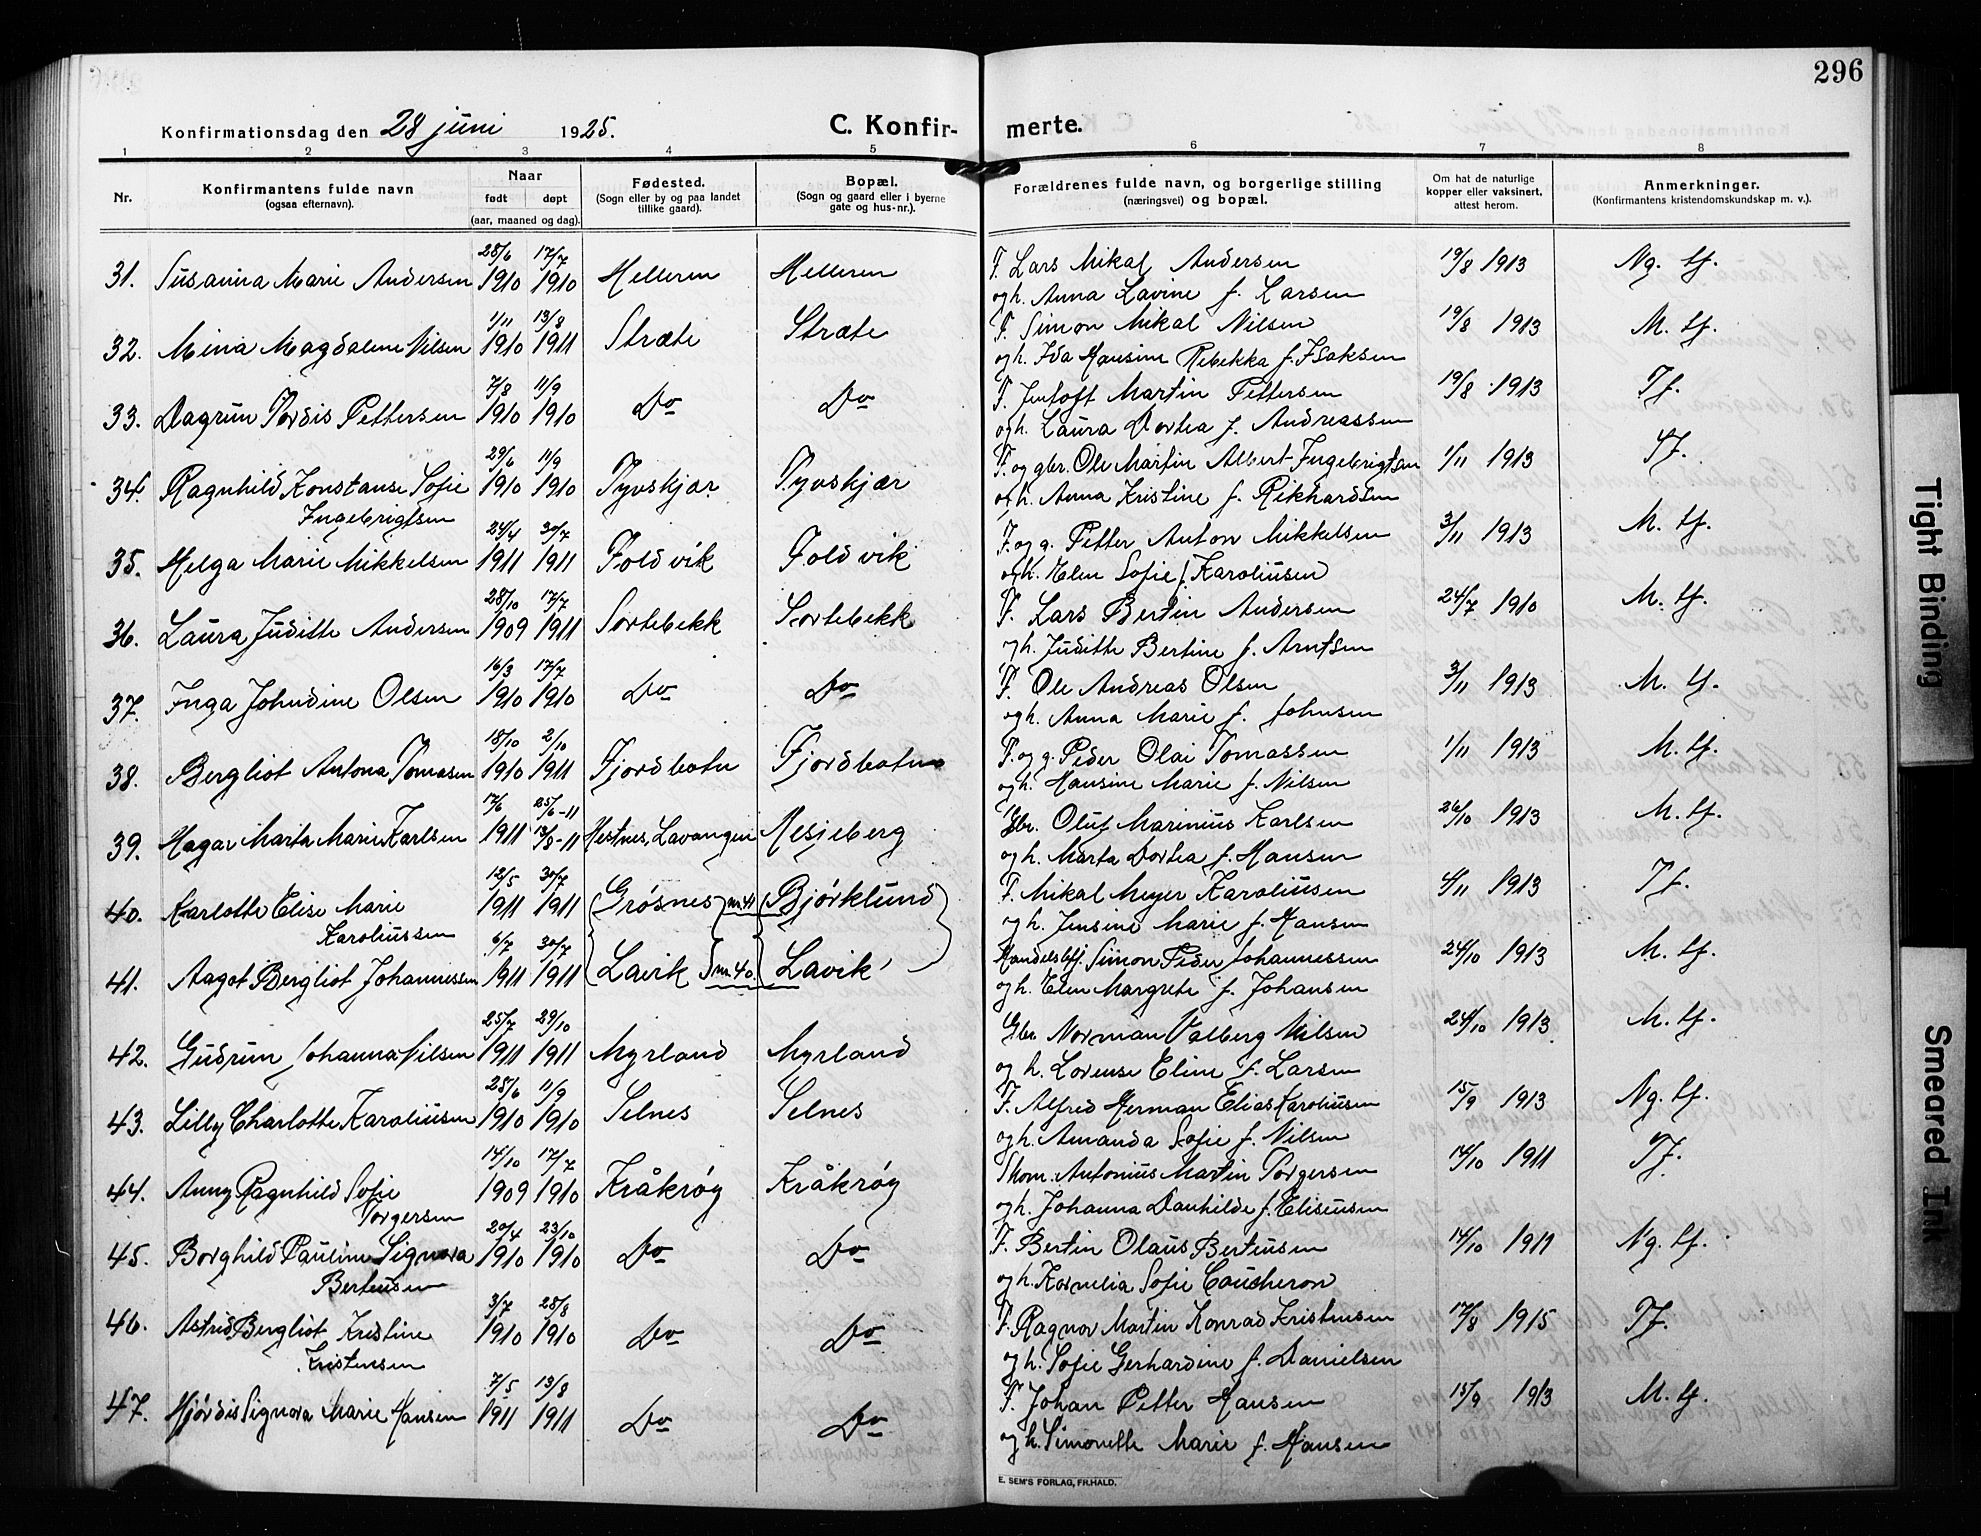 296
Konfirmationsdag den 28 juni 1925.
C. Konfir- merte.
1 2 3 4 5 6 7 8
Nr.
Konfirmantens fulde navn
(ogsaa efternavn).
Naar
født døpt
(aar, maaned og dag).
Fødested.
(Sogn eller by og paa landet
tillike gaard).
Bopæl.
(Sogn og gaard eller i byerne
gate og hus-nr.).
Forældrenes fulde navn, og borgerlige stilling
(næringsvei) og bopæl.
Om hat de naturlige
kopper eller vaksinert,
attest herom.
Anmerkninger.
(Konfirmantens kristendomskundskap m. v.).
31. Susanna Marie Andersen 28/6 1910 17/7 1910 Helleren Helleren F. Lars Mikal Andersen 19/8 1913 Ng. tf.
og h. Anna Lavine f. Larsen
32. Mina Magdalene Nilsen 1/11 1910 13/8 1911 Stræte Stræte F. Simon Mikal Nilsen 19/8 1913 M. tf.
og h. Ida Hansine Rebekka f. Isaksen
33. Dagrun Tordis Pettersen 7/8 1910 11/9 1910 Do Do F. Jentoft Martin Pettersen 19/8 1913 Tf.
og h. Laura Dortea f. Andreassen
34. Ragnhild Konstanse Sofie 29/6 1910 11/9 1910 Tyvskjær Tyvskjær F. og gbr. Ole Martin Albert Ingebrigtsen 1/11 1913 Tf.
Ingebrigtsen og h. Anna Kristine f. Rikhardsen
35. Helga Marie Mikkelsen 24/4 1911 30/7 1911 Foldvik Foldvik F. og g. Petter Anton Mikkelsen 3/11 1913 M. tf.
og h. Elen Sofie f. Karoliussen
36. Laura Juditte Andersen 28/10 1909 17/7 1911 Sortebekk Sortebekk F. Lars Bertin Andersen 24/7 1910 M. tf.
og h. Juditte Bertine f. Arntsen
37. Inga Johndine Olsen 16/3 1910 17/7 1910 Do Do F. Ole Andreas Olsen 3/11 1913 M. tf.
og h. Anna Marie f. Johnsen
38. Bergliot Antona Tomasen 18/10 1910 2/10 1911 Fjordbotn Fjordbotn F. og g. Peder Olai Tomassen 1/11 1913 M. tf.
og h. Hansine Marie f. Nilsen
39. Hagar Marta Marie Karlsen 17/6 1911 25/6-11 13/8-11 Hestnes, Lavangen Hesjeberg Gbr. Oluf Marinius Karlsen 26/10 1913 M. tf.
og h. Marta Dortea f. Hansen
40. Karlotte Elise Marie 12/5 1911 30/7 1911 Grøsnes nr. 41 Bjørklund F. Mikal Meyer Karoliussen 4/11 1913 Tf.
Karoliussen og h. Jensine Marie f. Hansen
41. Aagot Bergliot Johannessen 6/7 1911 30/7 1911 Lavik nr. 40 Lavik Handelsbfj. Simon Peder Johannessen 24/10 1913 M. tf.
og h. Elen Margrete f. Johansen
42. Gudrun Johanna Nilsen 25/7 1911 29/10 1911 Myrland Myrland Gbr. Norman Valberg Nilsen 24/10 1913 M. tf.
og h. Lorense Eline f. Larsen
43. Lilly Charlotte Karoliussen 28/6 1910 11/9 1910 Selnes Selnes F. Alfred Herman Elias Karoliussen 15/9 1913 Ng. tf.
og h. Amanda Sofie f. Nilsen
44. Anny Ragnhild Sofie 14/10 1909 17/7 1910 Kråkrøy Kråkrøy Skom. Antonius Martin Torgersen 14/10 1911 Tf.
Torgersen og h. Johanna Danhilde f. Eliseussen
45. Borghild Pauline Signora 20/4 1910 23/10 1910 Do Do F. Bertin Olaus Berteusen 14/10 1911 Ng. tf.
Berteusen og h. Kornelia Sofie Coucheron
46. Astrid Bergliot Kristine 3/7 1910 28/8 1910 Do Do F. Ragnor Martin Konrad Kristensen 17/8 1915 Tf.
Kristensen og h. Sofie Gerhardine f. Danielsen
47. Hjørdis Signora Marie Hansen 7/5 1911 13/8 1911 Do Do F. Johan Petter Hansen 15/9 1913 M. tf.
og h. Simonette Marie f. Hansen
E. SEM'S FORLAG, FR.HALD.
Tight Binding
Smeared Ink